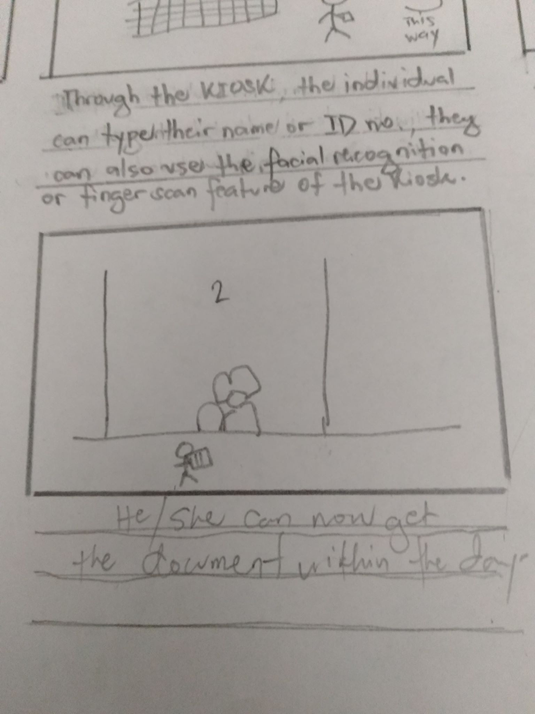 This
way
Through the KIOSK, the individual
can type their name or ID no., they
can also use the facial recognition
or finger scan feature of the Kiosk.
2
He/She can now get
the document within the day